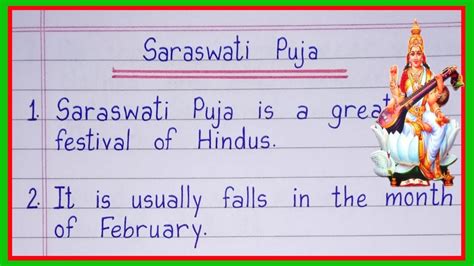 Saraswati Puja
1. Saraswati Puja is a great
festival of Hindus.
2. It is usually falls in the month
of February.